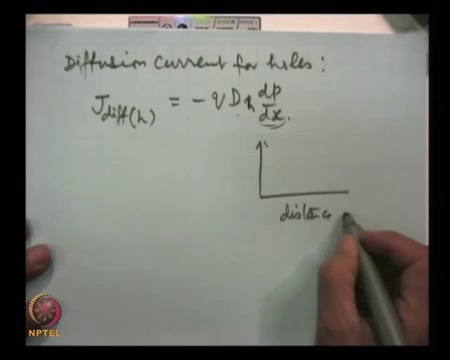 Diffusion current for holes :
J diff(h) = - q D h dp/dx .
distance
NPTEL